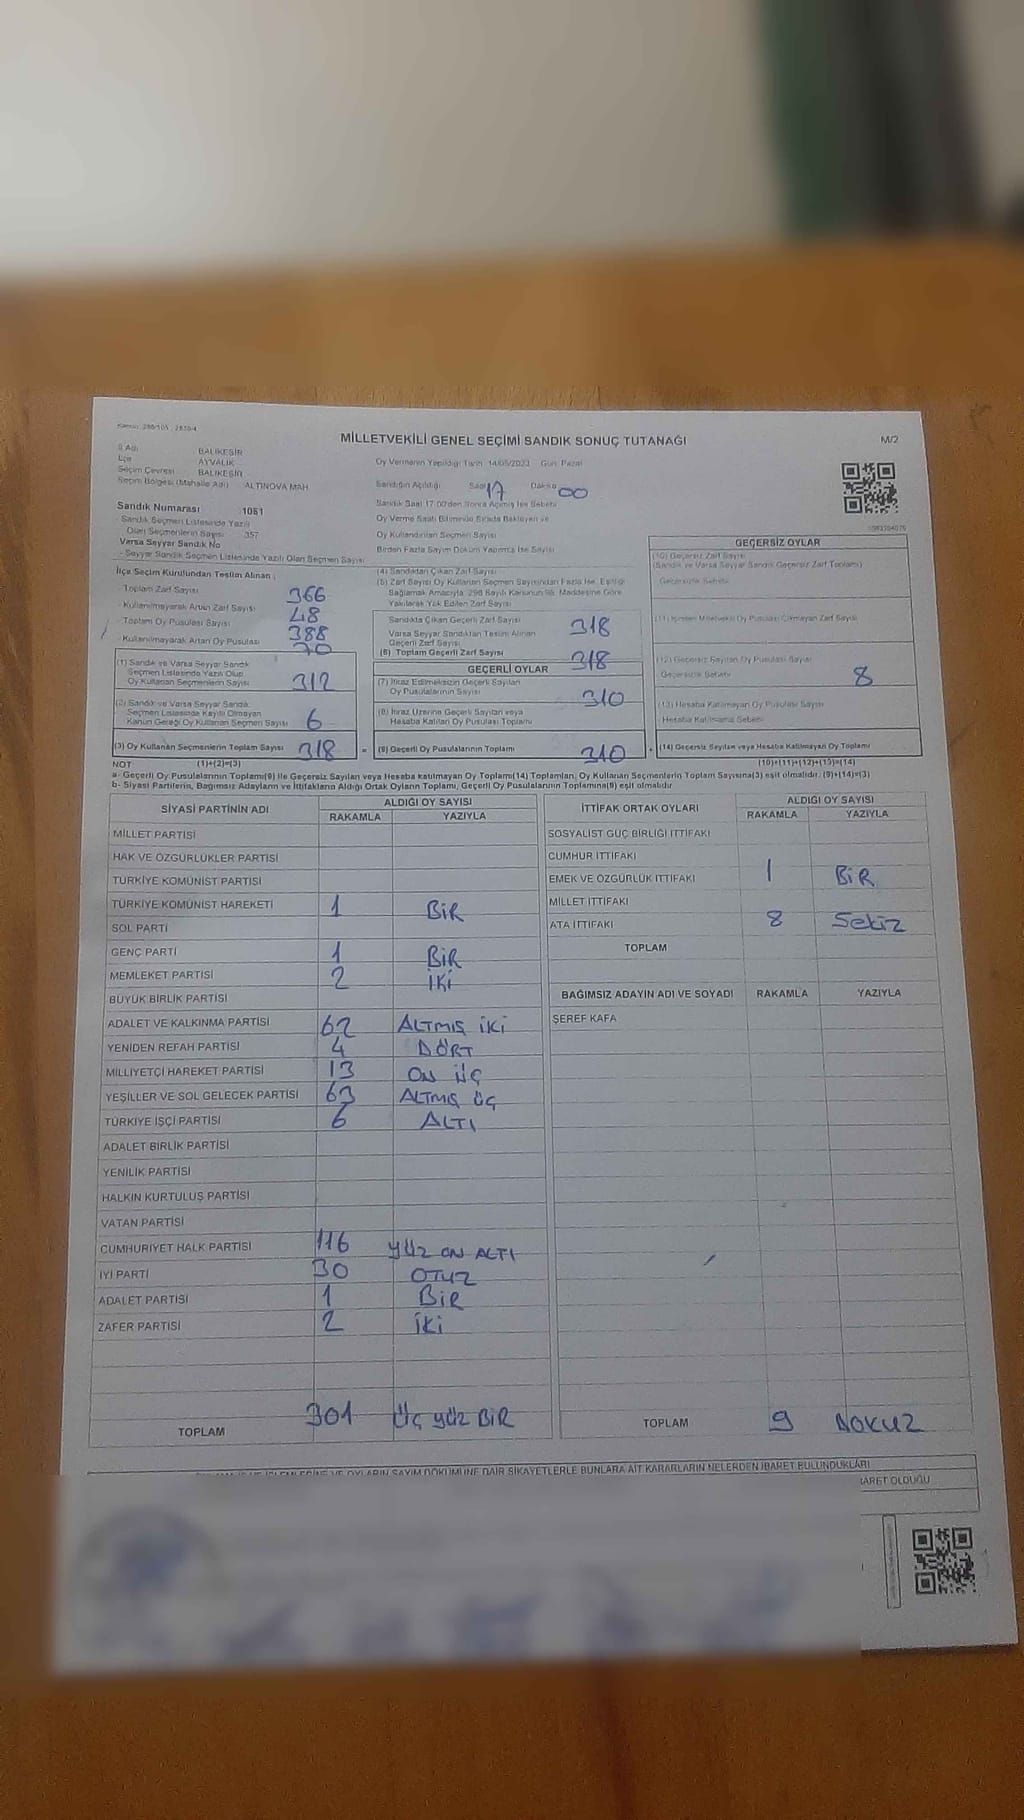 MİLLETVEKİLİ GENEL SEÇİMİ SANDIK SONUÇ TUTANAĞI
M/2
İl Adı BALIKESİR
İlçe AYVALIK
Seçim Çevresi BALIKESİR
Seçim Bölgesi (Mahalle Adı) ALTINOVA MAH
Oy Vermenin Yapıldığı Tarih 14/05/2023 Gün Pazar
Sandığın Açıldığı Saat 17 Dakika 00
Sandık Saat 17:00'den Sonra Açılmış İse Sebebi
Oy Verme Saati Bitiminde Sırada Bekleyen ve
Oy Kullandırılan Seçmen Sayısı
Birden Fazla Sayım Döküm Yapılmış İse Sayısı
Sandık Numarası 1051
- Sandık Seçmen Listesinde Yazılı
Olan Seçmenlerin Sayısı 357
Varsa Seyyar Sandık No
- Seyyar Sandık Seçmen Listesinde Yazılı Olan Seçmen Sayısı
İlçe Seçim Kurulundan Teslim Alınan :
- Toplam Zarf Sayısı 366
- Kullanılmayarak Artan Zarf Sayısı 48
- Toplam Oy Pusulası Sayısı 388
- Kullanılmayarak Artan Oy Pusulası 70
(1) Sandık ve Varsa Seyyar Sandık
Seçmen Listesinde Yazılı Olup
Oy Kullanan Seçmenlerin Sayısı 312
(2) Sandık ve Varsa Seyyar Sandık
Seçmen Listesinde Kayıtlı Olmayan
Kanun Gereği Oy Kullanan Seçmen Sayısı 6
(3) Oy Kullanan Seçmenlerin Toplam Sayısı 318
(4) Sandıktan Çıkan Zarf Sayısı
(5) Zarf Sayısı Oy Kullanan Seçmen Sayısından Fazla İse, Eşitliği
Sağlamak Amacıyla, 298 Sayılı Kanunun 98. Maddesine Göre
Yakılarak Yok Edilen Zarf Sayısı
Sandıkta Çıkan Geçerli Zarf Sayısı 318
Varsa Seyyar Sandıktan Teslim Alınan
Geçerli Zarf Sayısı
(6) Toplam Geçerli Zarf Sayısı 318
GEÇERLİ OYLAR
(7) İtiraz Edilmeksizin Geçerli Sayılan
Oy Pusulalarının Sayısı 310
(8) İtiraz Üzerine Geçerli Sayılan veya
Hesaba Katılan Oy Pusulası Toplamı
(9) Geçerli Oy Pusulalarının Toplamı 310
GEÇERSİZ OYLAR
(10) Geçersiz Zarf Sayısı
(Sandık ve Varsa Seyyar Sandık Geçersiz Zarf Toplamı)
Geçersizlik Sebebi
(12) Geçersiz Sayılan Oy Pusulası Sayısı
Geçersizlik Sebebi 8
(13) Hesaba Katılmayan Oy Pusulası Sayısı
- Hesaba Katılmama Sebebi
(14) Geçersiz Sayılan veya Hesaba Katılmayan Oy Toplamı
NOT (1)+(2)=(3)
(10)+(11)+(12)+(13)=(14)
a- Geçerli Oy Pusulalarının Toplamı(9) ile Geçersiz Sayılan veya Hesaba katılmayan Oy Toplamı(14) Toplamları, Oy Kullanan Seçmenlerin Toplam Sayısına(3) eşit olmalıdır. (9)+(14)=(3)
b- Siyasi Partilerin, Bağımsız Adayların ve İttifakların Aldığı Ortak Oyların Toplamı, Geçerli Oy Pusulalarının Toplamına(9) eşit olmalıdır
SİYASİ PARTİNİN ADI ALDIĞI OY SAYISI
RAKAMLA YAZIYLA
MİLLET PARTİSİ
HAK VE ÖZGÜRLÜKLER PARTİSİ
TÜRKİYE KOMÜNİST PARTİSİ
TÜRKİYE KOMÜNİST HAREKETİ 1 BİR
SOL PARTİ
GENÇ PARTİ 1 BİR
MEMLEKET PARTİSİ 2 İKİ
BÜYÜK BİRLİK PARTİSİ
ADALET VE KALKINMA PARTİSİ 62 ALTMIŞ İKİ
YENİDEN REFAH PARTİSİ 4 DÖRT
MİLLİYETÇİ HAREKET PARTİSİ 13 ON ÜÇ
YEŞİLLER VE SOL GELECEK PARTİSİ 63 ALTMIŞ ÜÇ
TÜRKİYE İŞÇİ PARTİSİ 6 ALTI
ADALET BİRLİK PARTİSİ
YENİLİK PARTİSİ
HALKIN KURTULUŞ PARTİSİ
VATAN PARTİSİ
CUMHURİYET HALK PARTİSİ 116 YÜZ ON ALTI
İYİ PARTİ 30 OTUZ
ADALET PARTİSİ 1 BİR
ZAFER PARTİSİ 2 İKİ
TOPLAM 301 ÜÇ YÜZ BİR
İTTİFAK ORTAK OYLARI ALDIĞI OY SAYISI
RAKAMLA YAZIYLA
SOSYALİST GÜÇ BİRLİĞİ İTTİFAKI
CUMHUR İTTİFAKI
EMEK VE ÖZGÜRLÜK İTTİFAKI 1 BİR
MİLLET İTTİFAKI
ATA İTTİFAKI 8 Sekiz
TOPLAM
BAĞIMSIZ ADAYIN ADI VE SOYADI RAKAMLA YAZIYLA
ŞEREF KAFA
TOPLAM 9 DOKUZ
OYLARIN SAYIM DÖKÜMÜNE DAİR ŞİKAYETLERLE BUNLARA AİT KARARLARIN NELERDEN İBARET BULUNDUKLARI